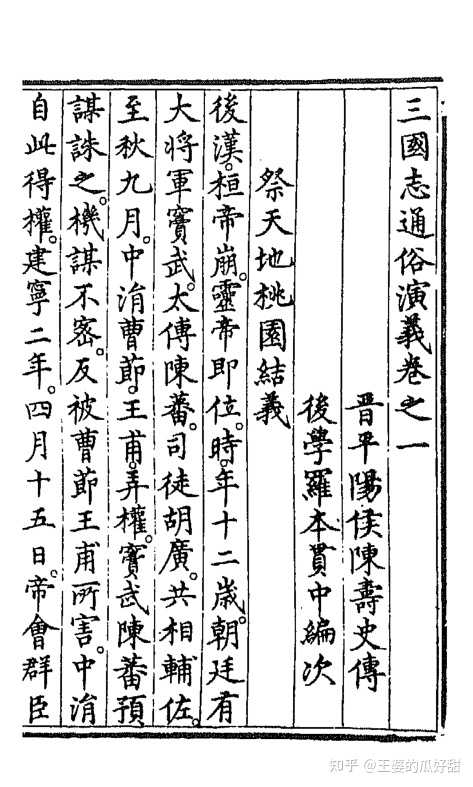 三國志通俗演義卷之一
晉平陽侯陳壽史傳
後學羅本貫中編次
祭天地桃園結義
後漢。桓帝崩。靈帝即位。時年十二歲。朝廷有
大將軍竇武。太傅陳蕃。司徒胡廣。共相輔佐。
至秋九月。中涓曹節。王甫。弄權。竇武陳蕃預
謀誅之。機謀不密。反被曹節王甫所害。中涓
自此得權。建寧二年。四月十五日。帝會群臣
知乎 @王婆的瓜好甜